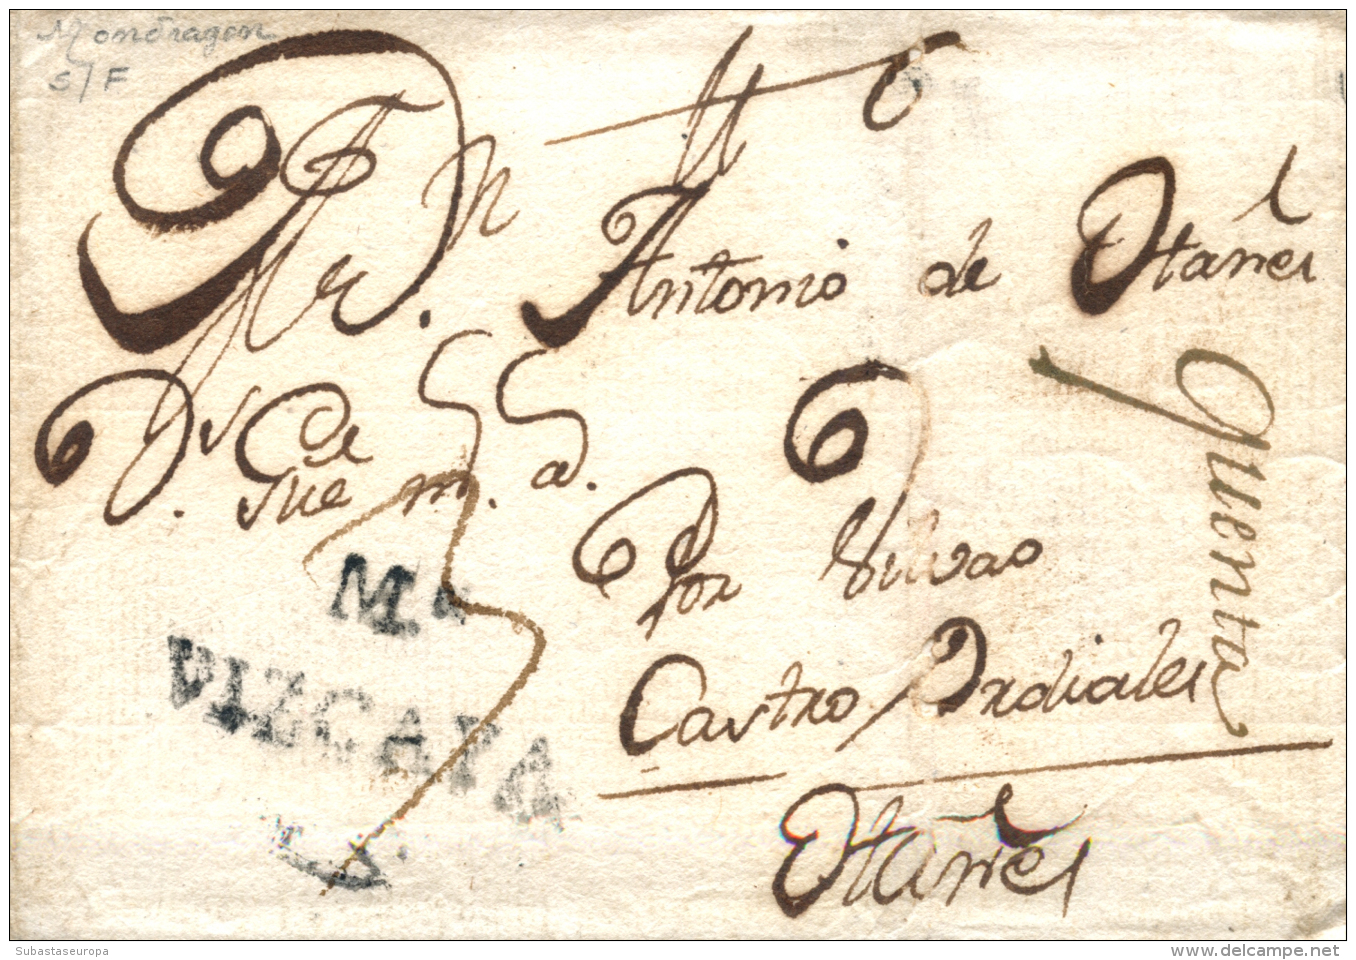 Mondragon
S/F
Sr. Dn Antonio de Otañes
Ds Gue m. a.
Por Vilvao
Castro Urdiales
Otañes
quenta
Mn
VIZCAYA
Subastaseuropa
www.delcampe.net